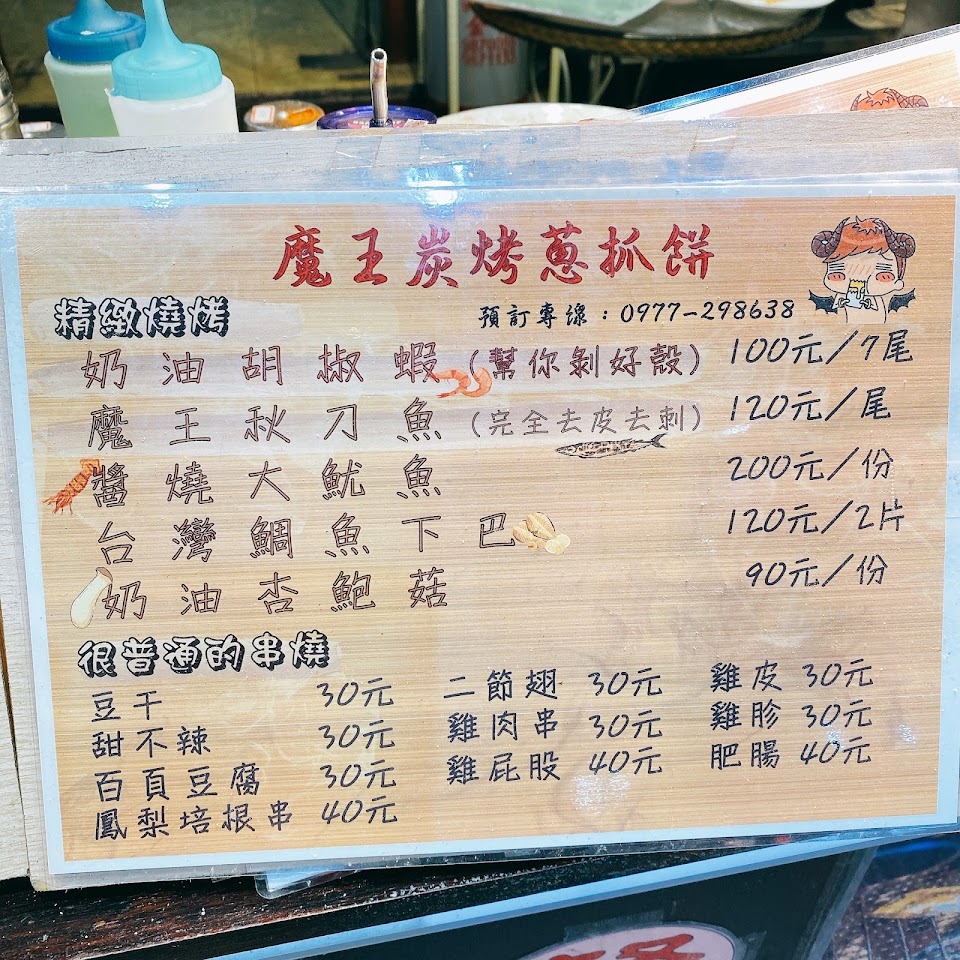 魔王炭烤蔥抓餅
精緻燒烤
預訂專線：0977-298638
奶油胡椒蝦(幫你剝好殼) 100元/7尾
魔王秋刀魚(完全去皮去刺) 120元/尾
醬燒大魷魚 200元/份
台灣鯛魚下巴 120元/2片
奶油杏鮑菇 90元/份
很普通的串燒
豆干 30元 二節翅 30元 雞皮 30元
甜不辣 30元 雞肉串 30元 雞胗 30元
百頁豆腐 30元 雞屁股 40元 肥腸 40元
鳳梨培根串 40元